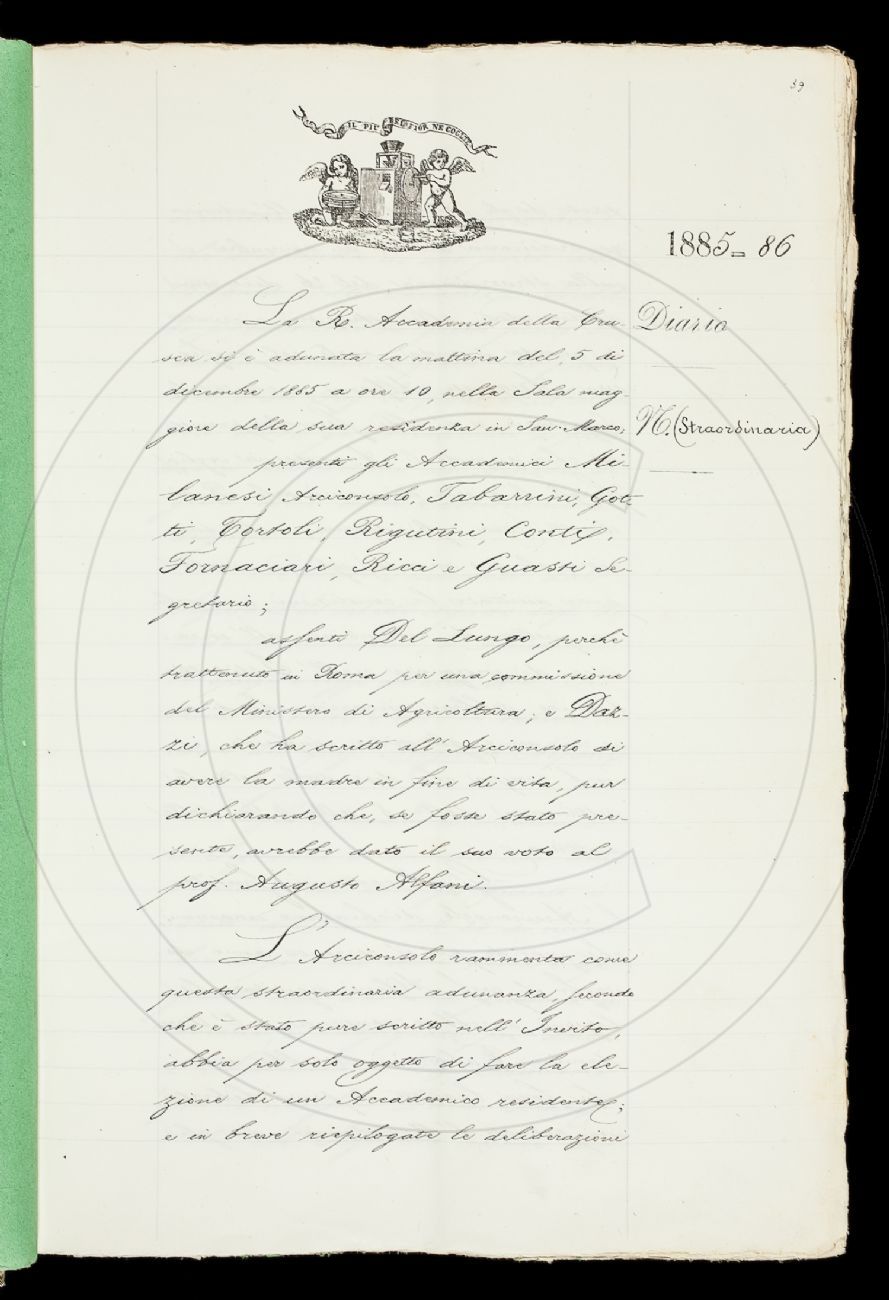 39
IL PIÙ BEL FIOR NE COGLIE
1885-86
Diario
N. (Straordinaria)
La R. Accademia della Cru-
sca si è adunata la mattina del 5 di
dicembre 1885 a ore 10, nella Sala mag-
giore della sua residenza in San Marco;
presenti gli Accademici Mi-
lanesi Arciconsolo, Tabarrini, Got-
ti, Tortoli, Rigutini, Conti,
Fornaciari, Ricci e Guasti Se-
gretario;
assenti Del Lungo, perchè
trattenuto in Roma per una commissione
del Ministero di Agricoltura; e Daz-
zi, che ha scritto all'Arciconsolo di
avere la madre in fine di vita, pur
dichiarando che, se fosse stato pre-
sente, avrebbe dato il suo voto al
prof. Augusto Alfani.
L'Arciconsolo rammenta come
questa straordinaria adunanza, secondo
che è stato pure scritto nell'Invito,
abbia per solo oggetto di fare la ele-
zione di un Accademico residente;
e in breve riepilogate le deliberazioni